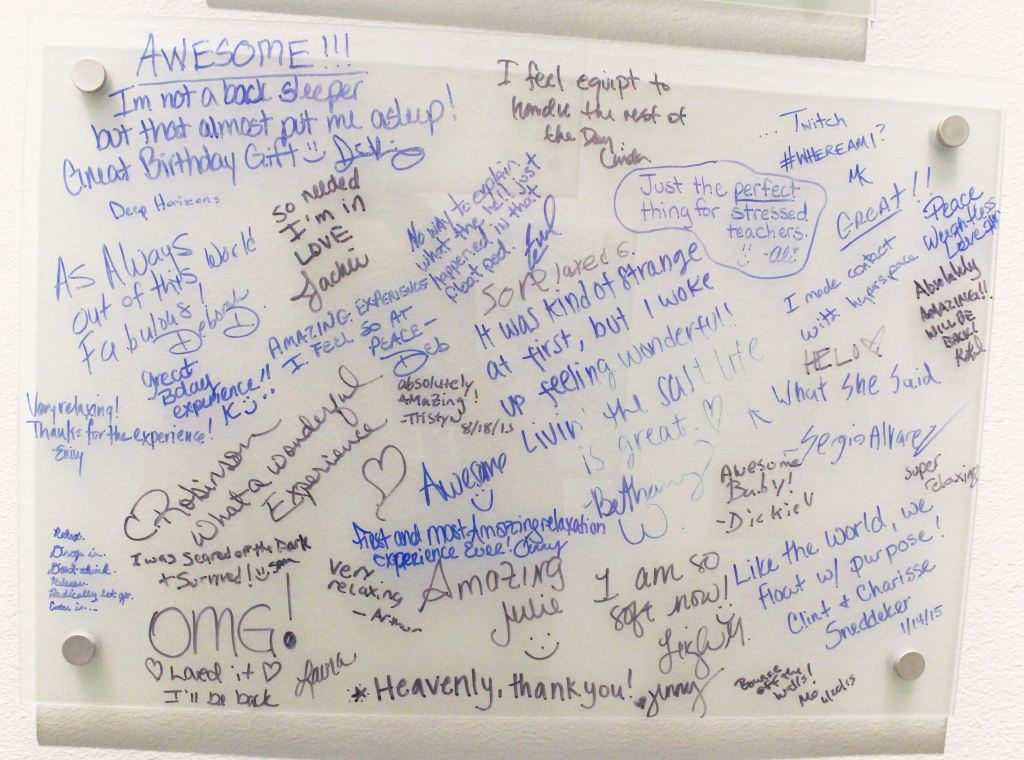 AWESOME!!!
Im not a back sleeper
but that almost put me asleep!
Great Birthday Gift
Deep Horizons
I feel equipt to
handle the rest of
the Day.
... Twitch
#WHEREAMI?
MK
Just the perfect
thing for stressed
teachers.
-ali
GREAT!!
Peace
Weightless
Love
so needed
I'm in
LOVE
Jackie
No WAY to explain
what the hell just
happened in that
float pod.
As Always
Out of this World
Fabulous!
Deborah
D
I made contact
with hyperspace
Absolutely
AMAZING!!
WILL BE
BACK!
AMAZING EXPERIENCE
I FEEL SO AT
PEACE-
Deb
So relaxed
It was kind of strange
at first, but I woke
up feeling wonderful!
HELO♡
great
Bday
experience!!
K
Very relaxing!
Thanks for the experience!
-Emily
absolutely
AMAZING!
-Tristyn
8/18/15
Awesome
Livin' the salt life
is great. ♡
-Bethany
What She Said
Sergio Alvarez
C Robinson
What a wonderful
Experience
♡
Awesome
Baby!
-DickieV
super
relaxing
First and most Amazing relaxation
experience ever!
Relax.
Drop in.
Don't think.
Release.
Radically let go.
I was Scared of the Dark
+ Survived!
Sam
very
relaxing
- Arthur
Amazing
Julie
I am so
soft now!
Leigh M.
Like the world, we
float w/ purpose!
Clint & Charisse
Sneddeker
1/14/15
OMG!
♡ Loved it ♡
I'll be back
Laura
*Heavenly, thank you!
Jenny
Bounce
off the
Walls!